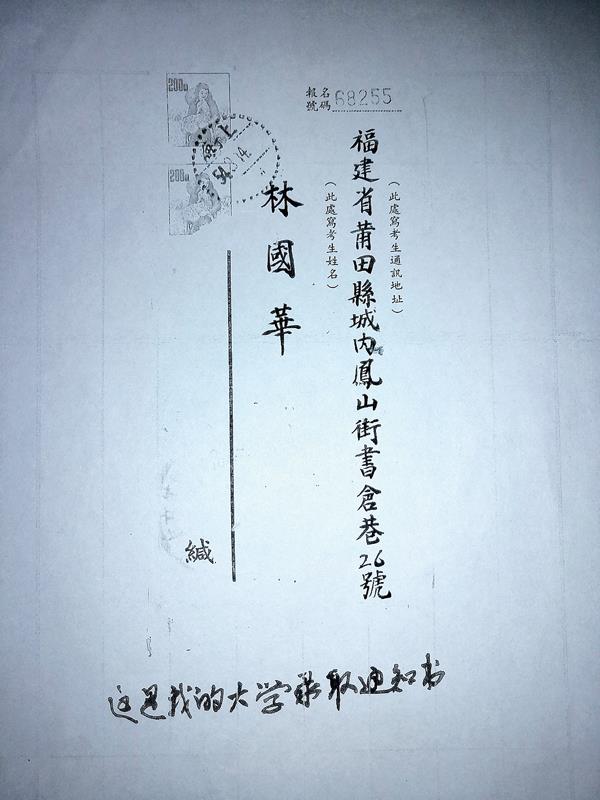 報名
號碼 68255
（此處寫考生通訊地址）
福建省莆田縣城内鳳山街書倉巷26號
（此處寫考生姓名）
林國華
200
200
上海
緘
这是我的大学录取通知书